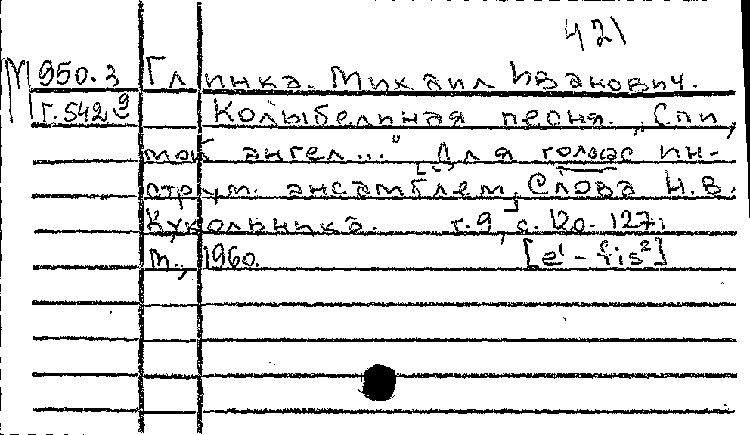 421
М 950.3 Глинка. Михаил Иванович.
Г.542 9 Колыбельная песня. „Спи,
мой ангел..." Для голоса [с] ин-
струм. ансамблем. Слова Н.В.
Кукольника. т.9, с. 120-127;
м., 1960. [e¹ - fis²]